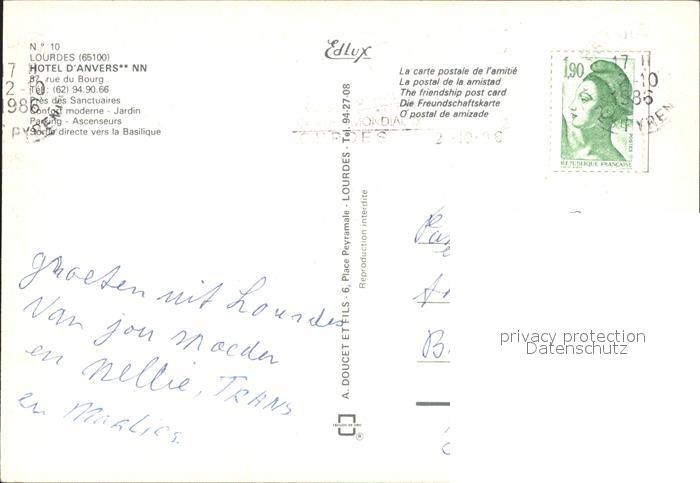 N° 10
LOURDES (65100)
HOTEL D'ANVERS** NN
87, rue du Bourg
Tel. (62) 94.90.66
Près des Sanctuaires
Confort moderne - Jardin
Parking - Ascenseurs
Sortie directe vers la Basilique
groeten uit Lourdes
Van jou moeder
en Nellie,
en
Edlux
A. DOUCET ET FILS - 6, Place Peyramale - LOURDES - Tel. 94-27-08
Reproduction interdite
La carte postale de l'amitié
La postal de la amistad
The friendship post card
Die Freundschaftskarte
O postal de amizade
MONDIAL
2-10-86
1,90
REPUBLIQUE FRANÇAISE
POSTES
17 H
-10
1986
PYREN
B.
privacy protection
Datenschutz